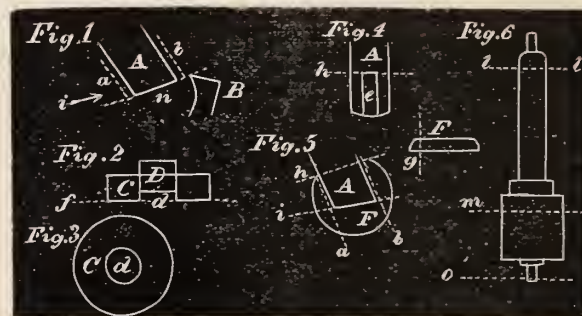 Fig.1
a
A
b
i
n
B
Fig.2
C
D
f
d
Fig.3
C
d
Fig.4
A
h
e
Fig.5
h
A
i
F
a
b
F
g
Fig.6
l
l
m
o